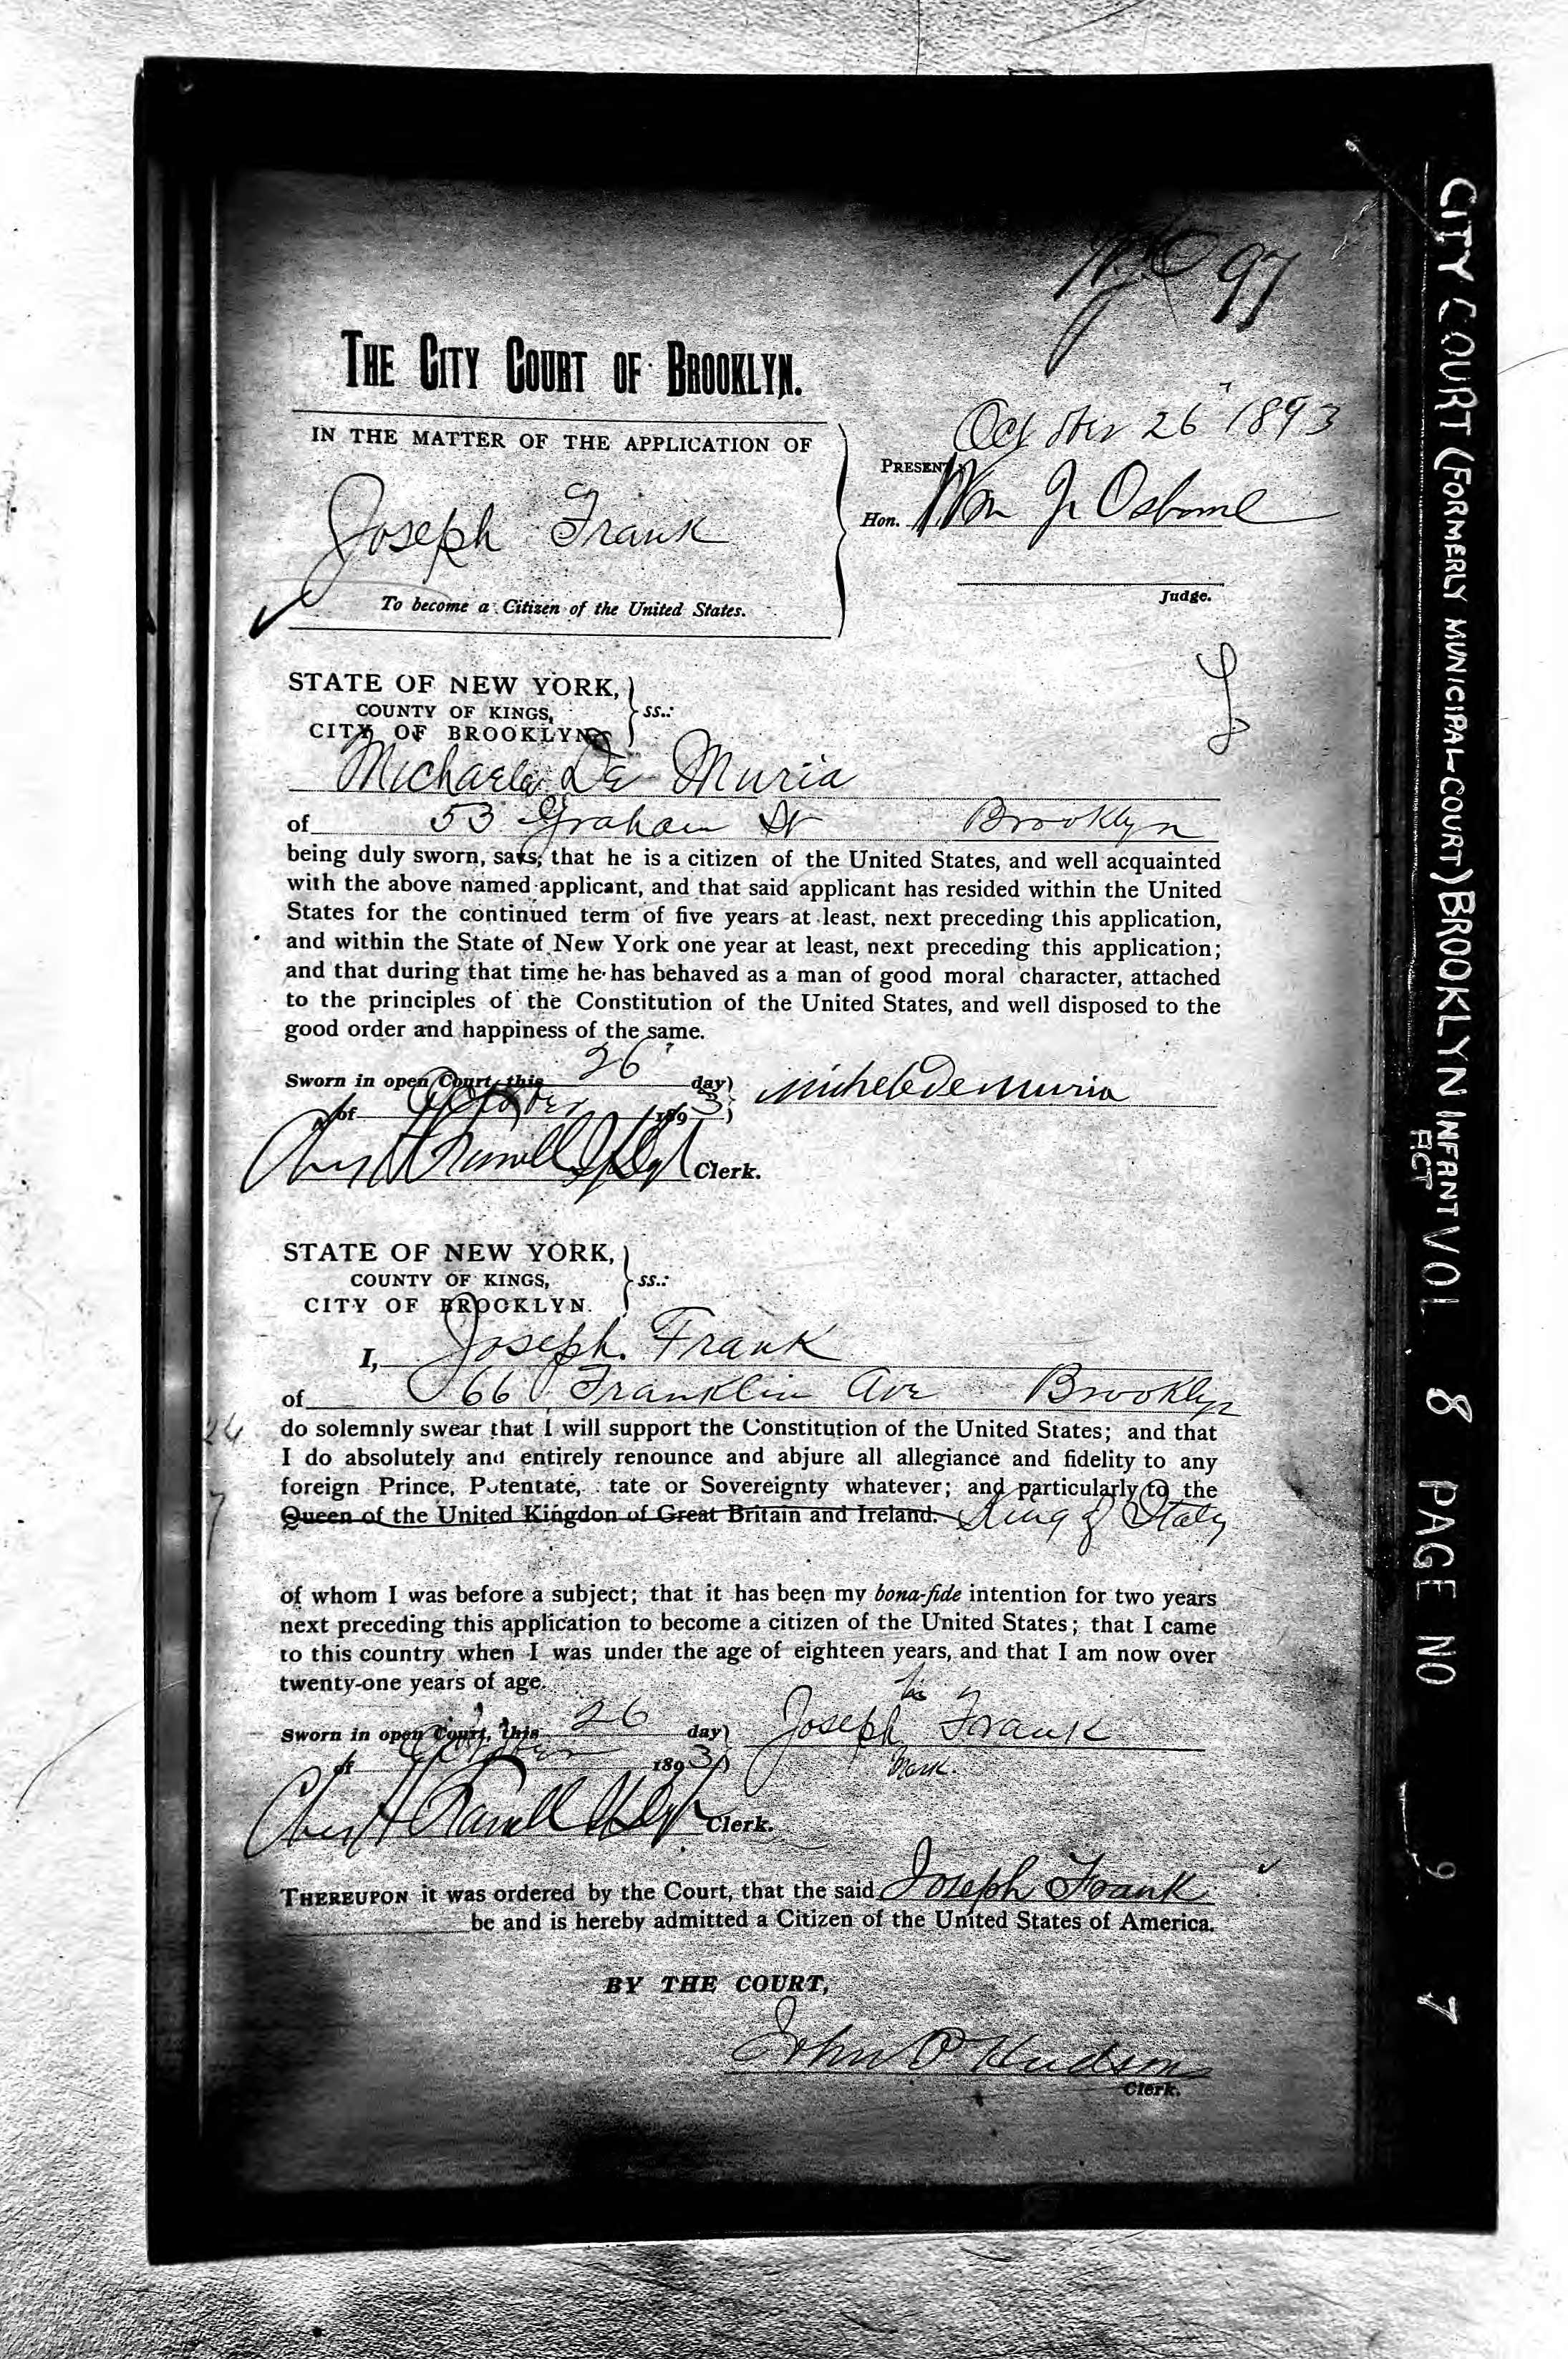 No 97
THE CITY COURT OF BROOKLYN.
October 26 1893
IN THE MATTER OF THE APPLICATION OF
PRESENT
Joseph Frank
Hon. Wm J Osborne
Judge.
To become a Citizen of the United States.
STATE OF NEW YORK,
COUNTY OF KINGS, ss.:
CITY OF BROOKLYN
Michaele De Muria
of 53 Graham St Brooklyn
being duly sworn, says, that he is a citizen of the United States, and well acquainted
with the above named applicant, and that said applicant has resided within the United
States for the continued term of five years at least, next preceding this application,
and within the State of New York one year at least, next preceding this application;
and that during that time he has behaved as a man of good moral character, attached
to the principles of the Constitution of the United States, and well disposed to the
good order and happiness of the same.
Sworn in open Court, this 26 day
of October 1893
Michele De Muria
Clerk.
STATE OF NEW YORK,
COUNTY OF KINGS, ss.:
CITY OF BROOKLYN.
I, Joseph Frank
of 66 Franklin Ave Brooklyn
do solemnly swear that I will support the Constitution of the United States; and that
I do absolutely and entirely renounce and abjure all allegiance and fidelity to any
foreign Prince, Potentate, tate or Sovereignty whatever; and particularly to the
Queen of the United Kingdon of Great Britain and Ireland. King of Italy
of whom I was before a subject; that it has been my bona-fide intention for two years
next preceding this application to become a citizen of the United States; that I came
to this country when I was under the age of eighteen years, and that I am now over
twenty-one years of age.
his
Sworn in open Court, this 26 day
Joseph Frank
of October 1893
mark.
Clerk.
THEREUPON it was ordered by the Court, that the said Joseph Frank
be and is hereby admitted a Citizen of the United States of America.
BY THE COURT,
John P Hudson
Clerk.
CITY COURT (FORMERLY MUNICIPAL-COURT) BROOKLYN INFANT ACT VOL 8 PAGE NO 97